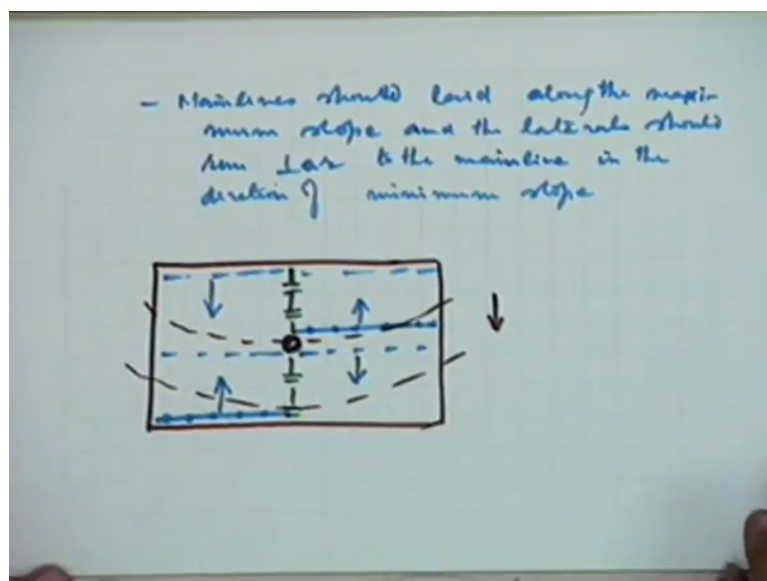 - Mainlines should laid along the maxi-
mum slope and the laterals should
run ⊥ar to the mainline in the
direction of minimum slope